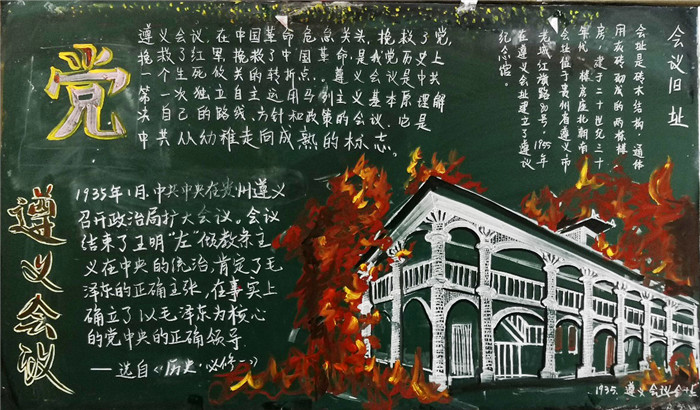 党
遵义会议，在中国革命危急关头，挽救了党，
挽救了红军，挽救了中国革命，是我党历史上
一个生死攸关的转折点。遵义会议是中共
第一次独立自主运用马列主义基本原理解
决自己的路线、方针和政策的会议。它是
中共从幼稚走向成熟的标志。
会议旧址
会址是砖木结构，通体
用灰砖砌成的两栋楼
房，建于二十世纪三十
年代。楼房座北朝南
会址位于贵州省遵义市
老城红旗路80号，1955年
在遵义会址建立了遵义
纪念馆。
遵义会议
1935年1月，中共中央在贵州遵义
召开政治局扩大会议。会议
结束了王明“左”倾教条主
义在中央的统治，肯定了毛
泽东的正确主张，在事实上
确立了以毛泽东为核心
的党中央的正确领导.
——选自《历史·必修一》
1935.遵义会议会址